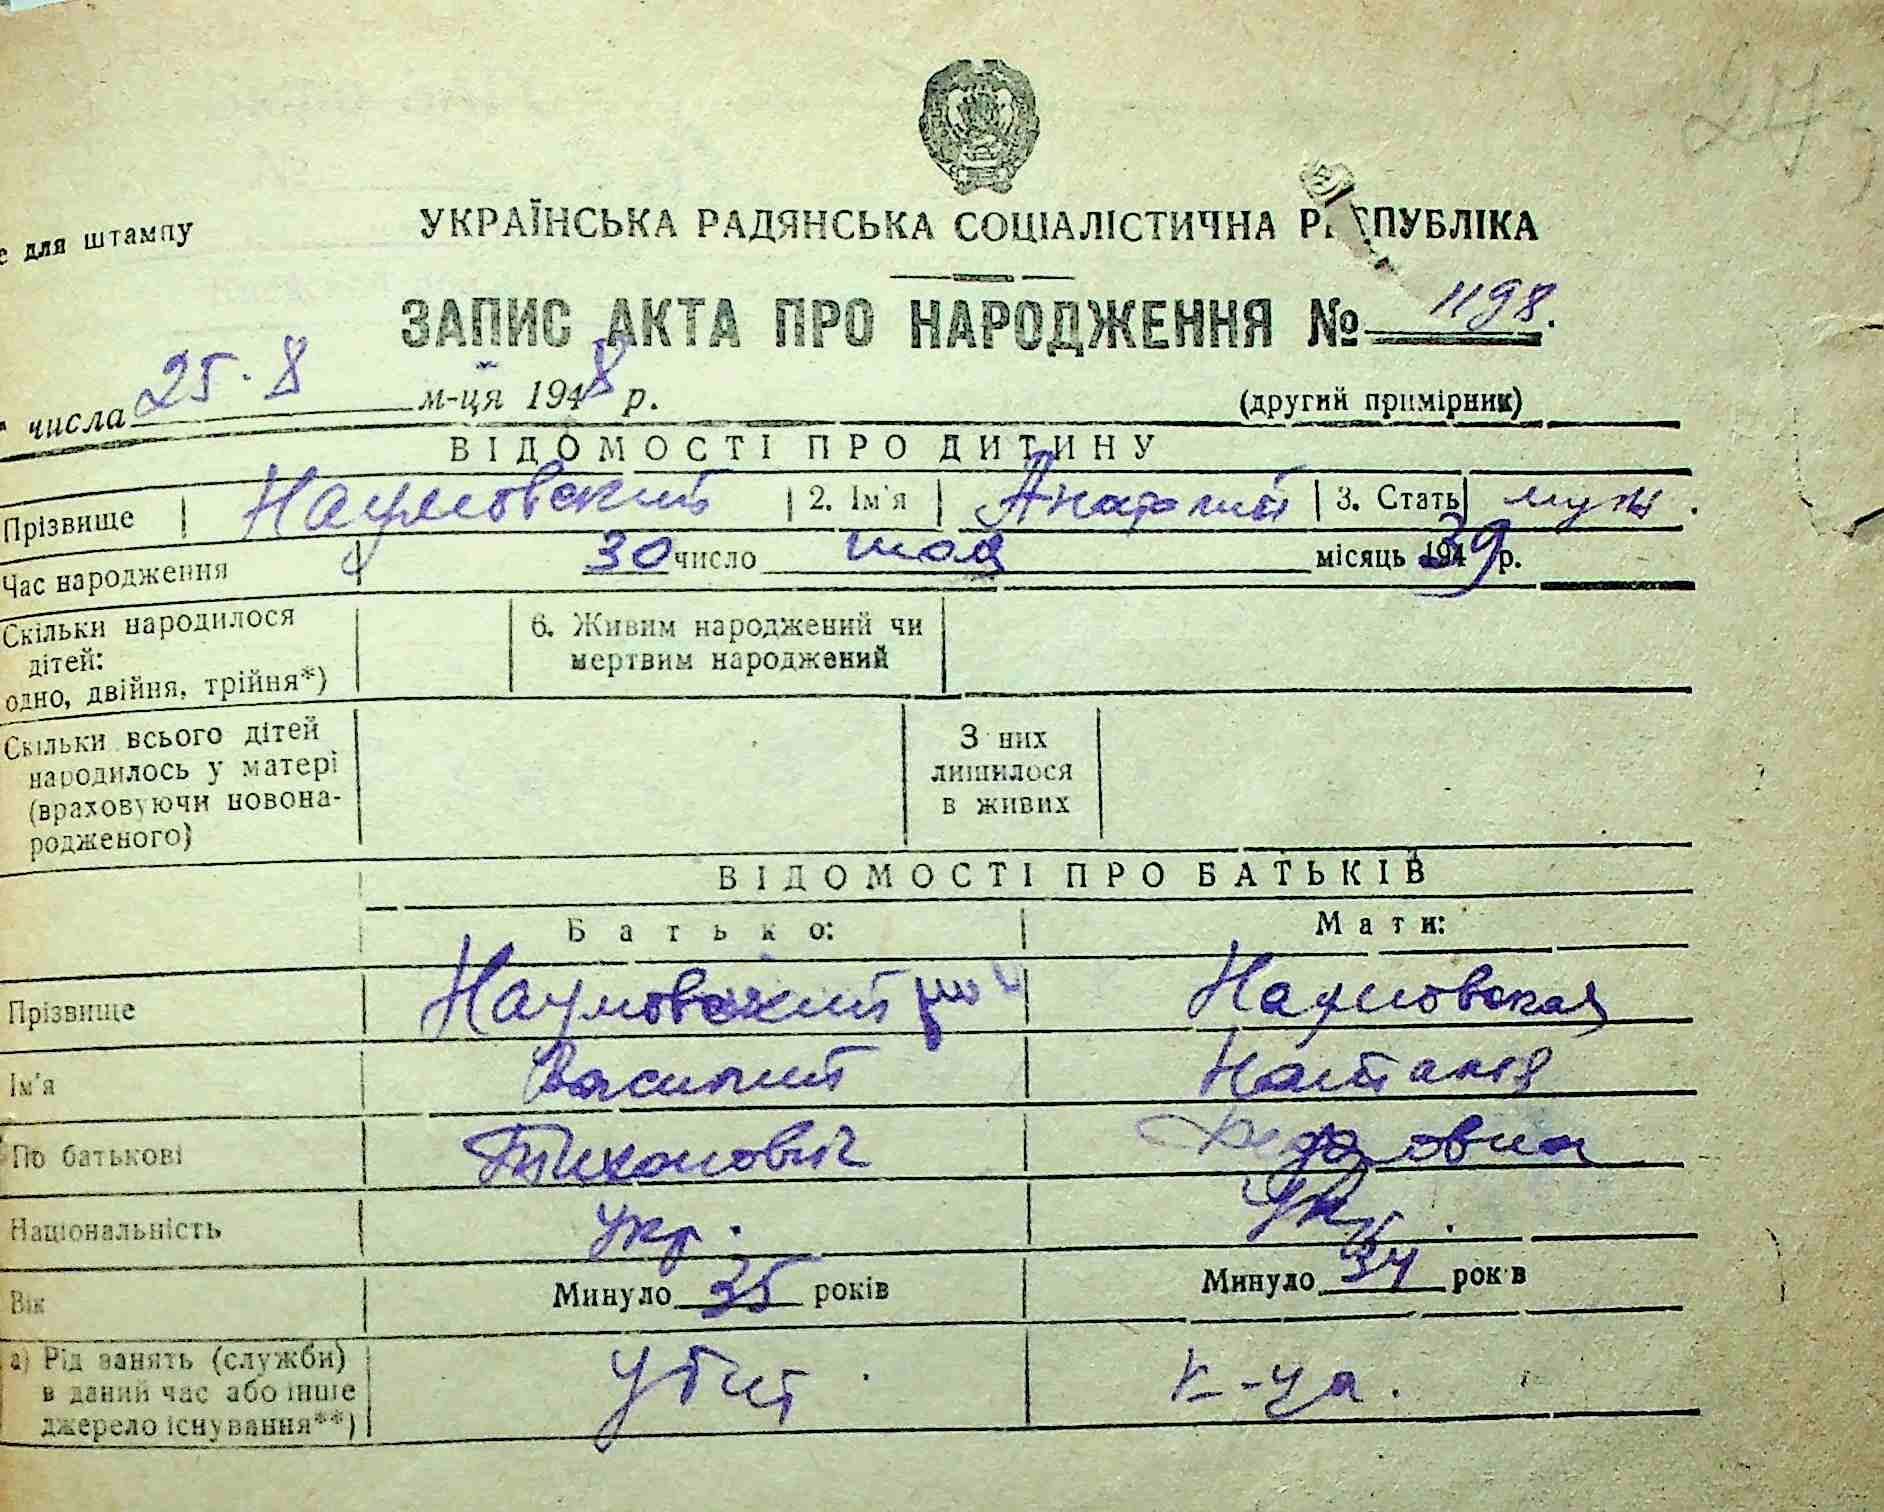 273
УКРАЇНСЬКА РАДЯНСЬКА СОЦІАЛІСТИЧНА РЕСПУБЛІКА
для штампу
ЗАПИС АКТА ПРО НАРОДЖЕННЯ № 1198.
числа 25.8 м-ця 1948 р.
(другий примірник)
ВІДОМОСТІ ПРО ДИТИНУ
Прізвище Наумовский 2. Ім'я Анатолий 3. Стать муж.
Час народження 30 число мая місяць 1939 р.
Скільки народилося дітей:
одно, двійня, трійня*)
6. Живим народжений чи мертвим народжений
Скільки всього дітей
народилось у матері
(враховуючи новона-
родженого)
З них
лишилося
в живих
ВІДОМОСТІ ПРО БАТЬКІВ
Батько: Мати:
Прізвище Наумовский Наумовская
Ім'я Василий Наталия
По батькові Тихонович Федоровна
Національність Укр. Укр.
Вік Минуло 35 років Минуло 34 років
а) Рід занять (служби)
в даний час або інше
джерело існування**)
Убит к-ца.